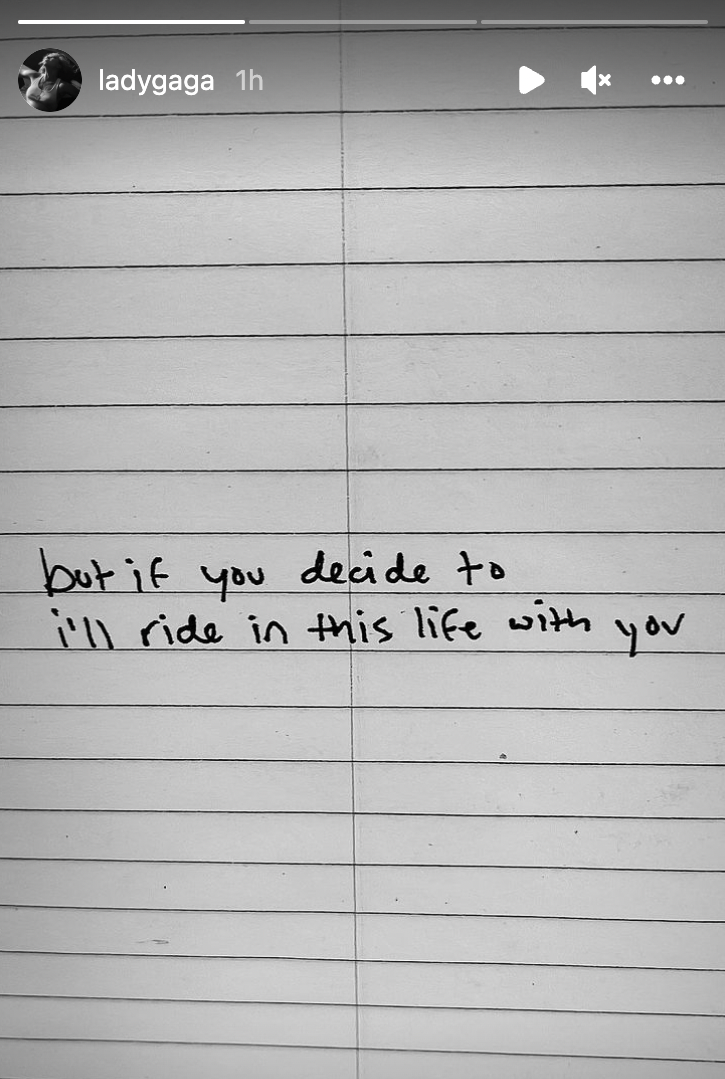 ladygaga 1h
but if you decide to
i'll ride in this life with you